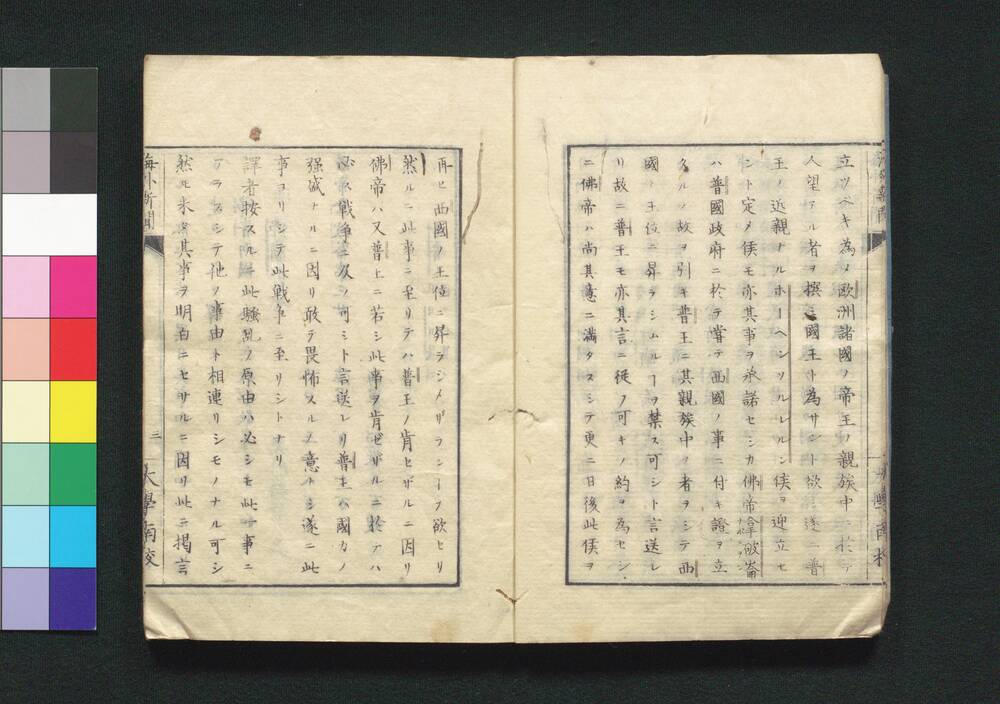 立ツヘキ為メ歐洲諸國ノ帝王ノ親族中ニ於テ
人望アル者ヲ撰ミ國王ト為サント欲シ遂ニ普
王ノ近親ナルホーヘンツルレルン侯ヲ迎立セ
ント定メ侯モ亦其事ヲ承諾セシカ佛帝拿破崙
ハ普國政府ニ於テ嘗テ西國ノ事ニ付キ證ヲ立
タルノ故ヲ引キ普王ニ其親族中ノ者ヲシテ西
國ノ王位ニ昇ラシムルヿヲ禁ス可シト言送レ
リ故ニ普王モ亦其言ニ從フ可キノ約ヲ為セシ
ニ佛帝ハ尚其意ニ滿タスシテ更ニ日後此侯ヲ
大學南校
再ヒ西國ノ王位ニ昇ラシメザランヿヲ欲セリ
然ルニ此事ニ至リテハ普王ノ肯セザルニ因リ
佛帝ハ又普王ニ若シ此事ヲ肯ゼザルニ於テハ
必ス戰爭ニ及フ可シト言送レリ普王ハ國力ノ
强盛ナルニ因リ敢テ畏怖スルノ意ナシ遂ニ此
事ヨリシテ此戰爭ニ至リシトナリ
譯者按スルニ此騷亂ノ原由ハ必シモ此一事ニ
アラスシテ他ノ事由ト相連リシモノナル可シ
然ル未タ其事ヲ明白ニセサルニ因リ此ニ掲言
海外新聞
二
大學南校